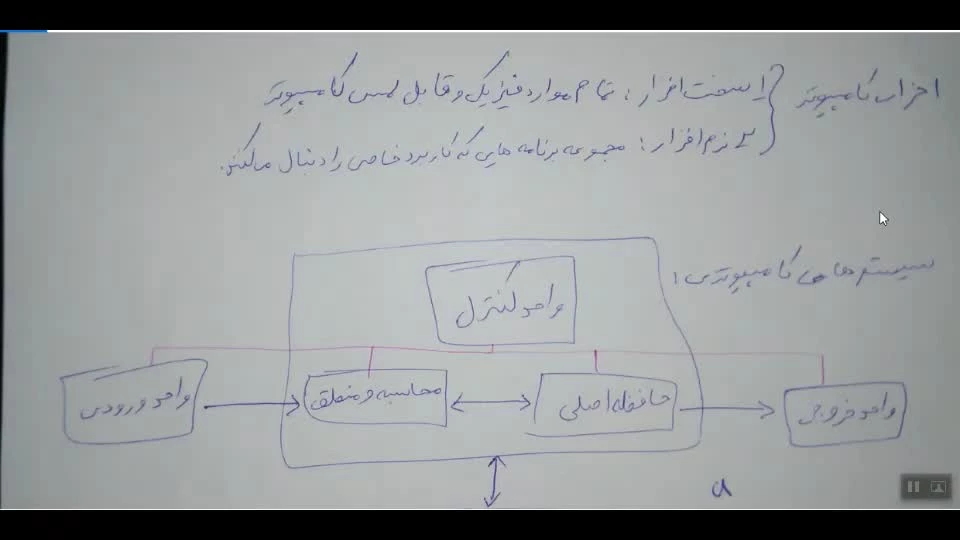 اجزای کامپیوتر
۱ـ سخت افزار : تمام موارد فیزیکی و قابل لمس کامپیوتر
۲ـ نرم افزار : مجموعه برنامه هایی که کاربرد خاصی را دنبال میکنند.
سیستم های کامپیوتری :
واحد کنترل
واحد ورودی
محاسبه و منطق
حافظه اصلی
واحد خروجی
a